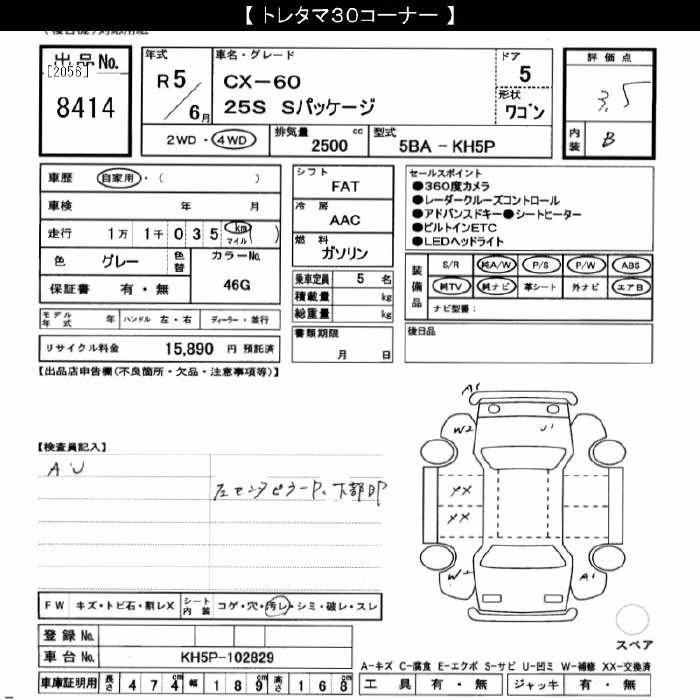 【 トレタマ30コーナー 】
出品No.
[2056]
8414
年式
R5/6月
車名・グレード
CX-60
25S Sパッケージ
ドア
5
形状
ワゴン
評価点
3.5
内装 B
2WD・4WD
排気量 2500 cc
型式 5BA - KH5P
車歴 自家用・( )
車検 年 月
走行 1万 1千 0 3 5 km マイル )
色 グレー 色替 カラーNo. 46G
保証書 有・無
シフト
FAT
冷房
AAC
燃料
ガソリン
乗車定員 5 名
積載量 kg
総重量 kg
書類期限
月 日
セールスポイント
●360度カメラ
●レーダークルーズコントロール
●アドバンスドキー●シートヒーター
●ビルトインETC
●LEDヘッドライト
装備品
S/R 純A/W P/S P/W ABS
純TV 純ナビ 革シート 外ナビ エアB
ナビ型番:
後日品
モデル年式 年 ハンドル 左・右 ディーラー・並行
リサイクル料金 15,890 円 預託済
【出品店申告欄(不良箇所・欠品・注意事項等)】
【検査員記入】
AU
左センタピラーP、下部凹P
A1
W2
U1
XX
XX
W2
A1
FW キズ・トビ石・割レX シート内装 コゲ・穴・汚レ・シミ・破レ・スレ
登録No.
車台No. KH5P-102829
車庫証明用 長さ 474cm 幅 189cm 高さ 168cm
スペア
A-キズ C-腐食 E-エクボ S-サビ U-凹ミ W-補修 XX-交換済
工具 有・無 ジャッキ 有・無